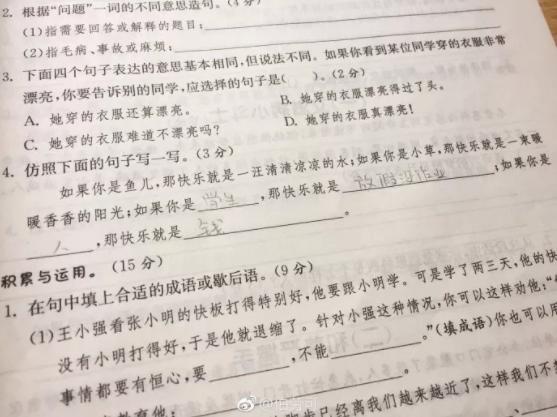 2. 根据“问题”一词的不同意思造句。(4分)
(1)指需要回答或解释的题目:
(2)指毛病、事故或麻烦:
3. 下面四个句子表达的意思基本相同,但说法不同。如果你看到某位同学穿的衣服非常
漂亮,你要告诉别的同学,应选择的句子是( )。(2分)
A. 她穿的衣服还算漂亮。 B. 她穿的衣服漂亮得过了头。
C. 她穿的衣服难道不漂亮吗? D. 她穿的衣服真漂亮!
4. 仿照下面的句子写一写。(3分)
如果你是鱼儿,那快乐就是一汪清清凉凉的水;如果你是小草,那快乐就是一束暖
暖香香的阳光;如果你是 学生 ,那快乐就是 放假没作业 ;如果你是
人 ,那快乐就是 钱 。
积累与运用。(15分)
1. 在句中填上合适的成语或歇后语。(9分)
(1)王小强看张小明的快板打得特别好,他要跟小明学。可是学了两三天,他的快
没有小明打得好,于是他就退缩了。针对小强这种情况,你可以这样劝他:“
事情都要有恒心,要 ,不能 。”(填成语)你也可以用
已经离我们越来越近了,这样我们不